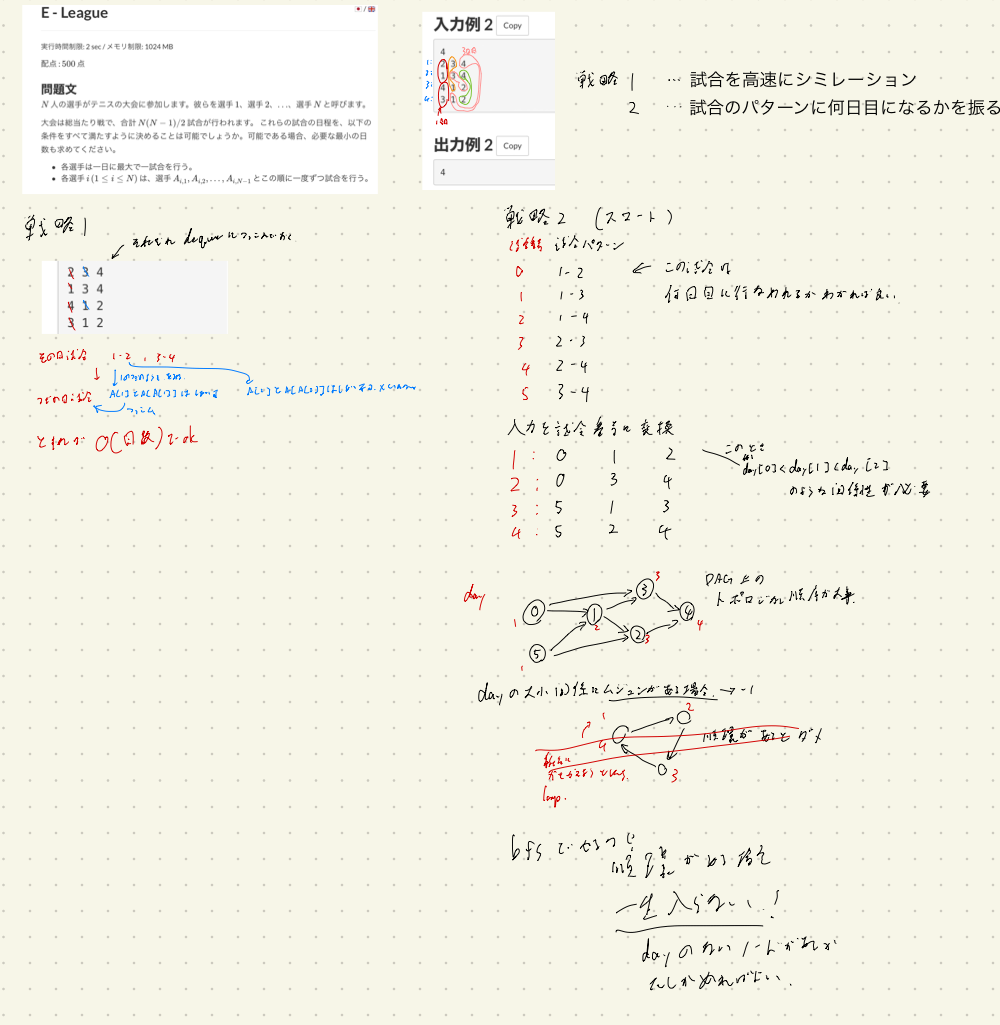 E - League
実行時間制限: 2 sec / メモリ制限: 1024 MB
配点 : 500 点
問題文
N 人の選手がテニスの大会に参加します。彼らを選手 1、選手 2、…、選手 N と呼びます。
大会は総当たり戦で、合計 N(N − 1)/2 試合が行われます。 これらの試合の日程を、以下の
条件をすべて満たすように決めることは可能でしょうか。可能である場合、必要な最小の日
数も求めてください。
• 各選手は一日に最大で一試合を行う。
• 各選手 i (1 ≤ i ≤ N) は、選手 A_{i,1}, A_{i,2}, …, A_{i,N−1} とこの順に一度ずつ試合を行う。
入力例 2 Copy
4
1: 2 3 4
2: 1 3 4
3: 4 1 2
4: 3 1 2
出力例 2 Copy
4
戦略 1 … 試合を高速にシミレーション
2 … 試合のパターンに何日目になるかを振る
戦略1
それぞれ deque につっこんでおく
2 3 4
1 3 4
4 1 2
3 1 2
その日の試合 1-2 , 3-4
つぎの日の試合
つっこむ
O(日数) で ok
戦略2 (スマート)
試合番号 試合パターン
0 1-2
1 1-3
2 1-4
3 2-3
4 2-4
5 3-4
← この試合は
何日目に行なわれるかわかれば良い.
入力を試合番号に変換
1 : 0 1 2
2 : 0 3 4
3 : 5 1 3
4 : 5 2 4
このとき
day[0] < day[1] < day[2]
のような関係性が必要
day
0 1 3 2 4 5
1 1 2 3 3 4
DAG 上の
トポロジカル順序が大事.
day の大小関係にムジュンがある場合. → -1
1 2 3 4
循環があるとダメ
loop.
bfs でやるので
循環がある場合
一生入らない!
day のないノードがあれば